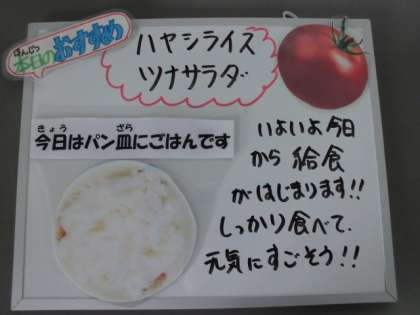 ほんじつ
本日のおすすめ
ハヤシライス
ツナサラダ
きょう ざら
今日はパン皿にごはんです
いよいよ今日
から 給食
がはじまります!!
しっかり食べて、
元気にすごそう!!